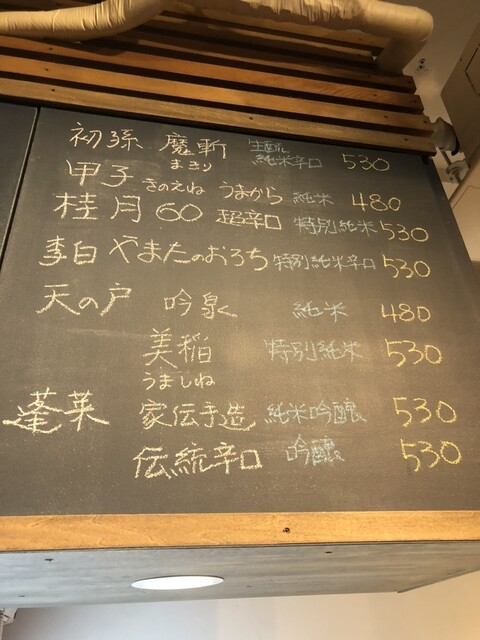 初孫 魔斬 生酛 純米辛口 530
まきり
甲子 きのえね うまから 純米 480
桂月 60 超辛口 特別純米 530
李白 やまたのおろち 特別純米辛口 530
天の戸 吟泉 純米 480
美稲 特別純米 530
うましね
蓬莱 家伝手造 純米吟醸 530
伝統辛口 吟醸 530